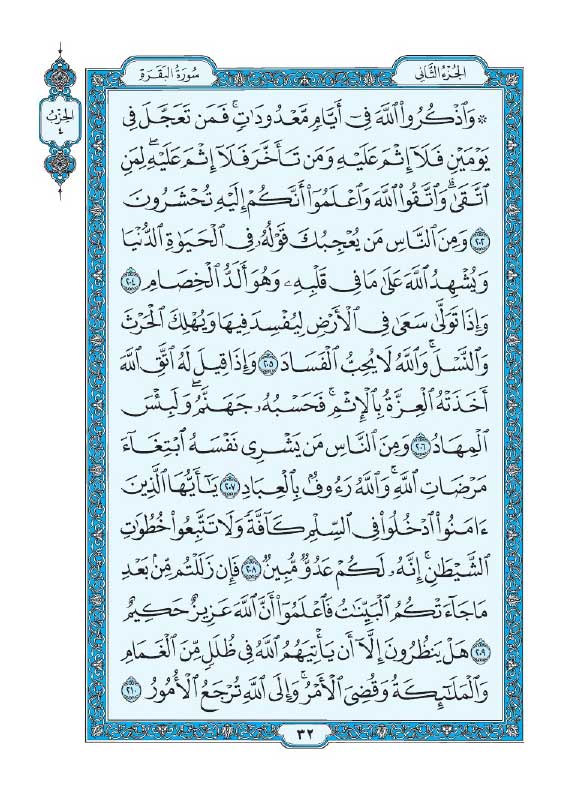 الجزء الثاني
سورة البقرة
الحزب
٤
۞ وَٱذْكُرُوا۟ ٱللَّهَ فِىٓ أَيَّامٍ مَّعْدُودَٰتٍ ۚ فَمَن تَعَجَّلَ فِى
يَوْمَيْنِ فَلَآ إِثْمَ عَلَيْهِ وَمَن تَأَخَّرَ فَلَآ إِثْمَ عَلَيْهِ ۚ لِمَنِ
ٱتَّقَىٰ ۗ وَٱتَّقُوا۟ ٱللَّهَ وَٱعْلَمُوٓا۟ أَنَّكُمْ إِلَيْهِ تُحْشَرُونَ
٢٠٣ وَمِنَ ٱلنَّاسِ مَن يُعْجِبُكَ قَوْلُهُۥ فِى ٱلْحَيَوٰةِ ٱلدُّنْيَا
وَيُشْهِدُ ٱللَّهَ عَلَىٰ مَا فِى قَلْبِهِۦ وَهُوَ أَلَدُّ ٱلْخِصَامِ ٢٠٤
وَإِذَا تَوَلَّىٰ سَعَىٰ فِى ٱلْأَرْضِ لِيُفْسِدَ فِيهَا وَيُهْلِكَ ٱلْحَرْثَ
وَٱلنَّسْلَ ۗ وَٱللَّهُ لَا يُحِبُّ ٱلْفَسَادَ ٢٠٥ وَإِذَا قِيلَ لَهُ ٱتَّقِ ٱللَّهَ
أَخَذَتْهُ ٱلْعِزَّةُ بِٱلْإِثْمِ ۚ فَحَسْبُهُۥ جَهَنَّمُ ۚ وَلَبِئْسَ
ٱلْمِهَادُ ٢٠٦ وَمِنَ ٱلنَّاسِ مَن يَشْرِى نَفْسَهُ ٱبْتِغَآءَ
مَرْضَاتِ ٱللَّهِ ۗ وَٱللَّهُ رَءُوفٌۢ بِٱلْعِبَادِ ٢٠٧ يَٰٓأَيُّهَا ٱلَّذِينَ
ءَامَنُوا۟ ٱدْخُلُوا۟ فِى ٱلسِّلْمِ كَآفَّةً وَلَا تَتَّبِعُوا۟ خُطُوَٰتِ
ٱلشَّيْطَٰنِ ۚ إِنَّهُۥ لَكُمْ عَدُوٌّ مُّبِينٌ ٢٠٨ فَإِن زَلَلْتُم مِّنۢ بَعْدِ
مَا جَآءَتْكُمُ ٱلْبَيِّنَٰتُ فَٱعْلَمُوٓا۟ أَنَّ ٱللَّهَ عَزِيزٌ حَكِيمٌ
٢٠٩ هَلْ يَنظُرُونَ إِلَّآ أَن يَأْتِيَهُمُ ٱللَّهُ فِى ظُلَلٍ مِّنَ ٱلْغَمَامِ
وَٱلْمَلَٰٓئِكَةُ وَقُضِىَ ٱلْأَمْرُ ۚ وَإِلَى ٱللَّهِ تُرْجَعُ ٱلْأُمُورُ ٢١٠
٣٢